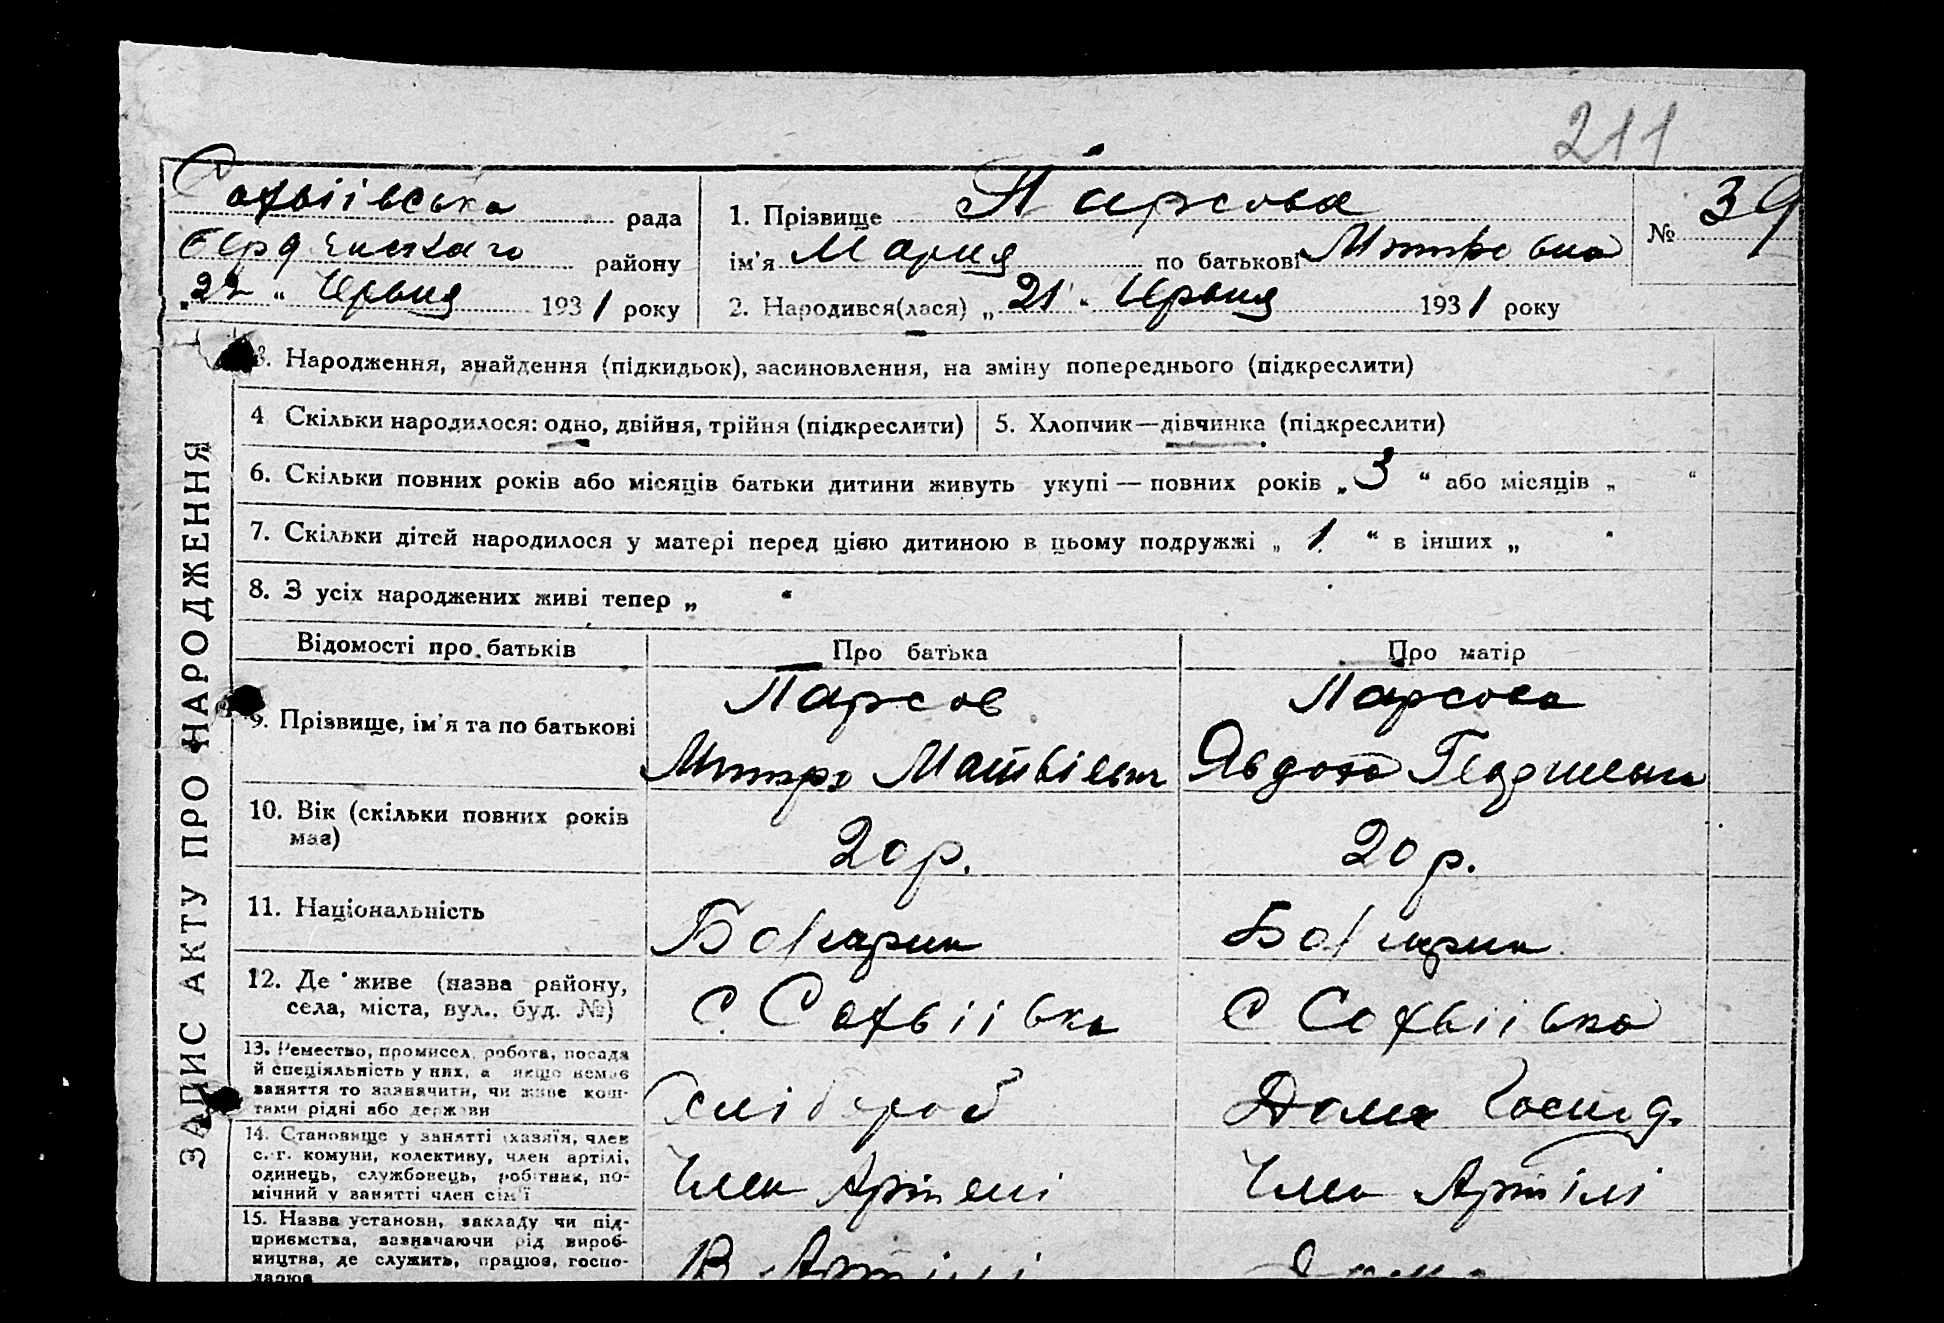 211
Софіівська рада
1. Прізвище Парсова
№ 39
Бердянского району
ім'я Мария по батькові Митровна
„22“ Червня 1931 року
2. Народився(лася) „21“ Червня 1931 року
ЗАПИС АКТУ ПРО НАРОДЖЕННЯ
3. Народження, знайдення (підкидьок), засиновлення, на зміну попереднього (підкреслити)
4 Скільки народилося: одно, двійня, трійня (підкреслити)
5. Хлопчик—дівчинка (підкреслити)
6. Скільки повних років або місяців батьки дитини живуть укупі — повних років „3“ або місяців „ “
7. Скільки дітей народилося у матері перед цією дитиною в цьому подружжі „1“ в інших „ “
8. З усіх народжених живі тепер „ “
Відомості про батьків
Про батька
Про матір
9. Прізвище, ім'я та по батькові
Парсов
Митро Матвієвич
Парсова
Явдоха
10. Вік (скільки повних років
має)
20 р.
20 р.
11. Національність
Болгарин
Болгарин
12. Де живе (назва району,
села, міста, вул., буд. №)
С. Софіівка
С Софіівка
13. Ремество, промисел, робота, посада
й спеціяльність у них, а якщо немає
заняття то зазначити, чи живе кош-
тами рідні або держави
Хлібороб
Дома Господ.
14. Становище у занятті (хазяїн, член
с.-г. комуни, колективу, член артілі,
одинець, службовець, робітник, по-
мічний у занятті член сім'ї
Член Артелі
Член Артілі
15. Назва установи, закладу чи під-
приємства, зазначаючи рід вироб-
ництва, де служить, працює, госпо-
дарює
В Артілі